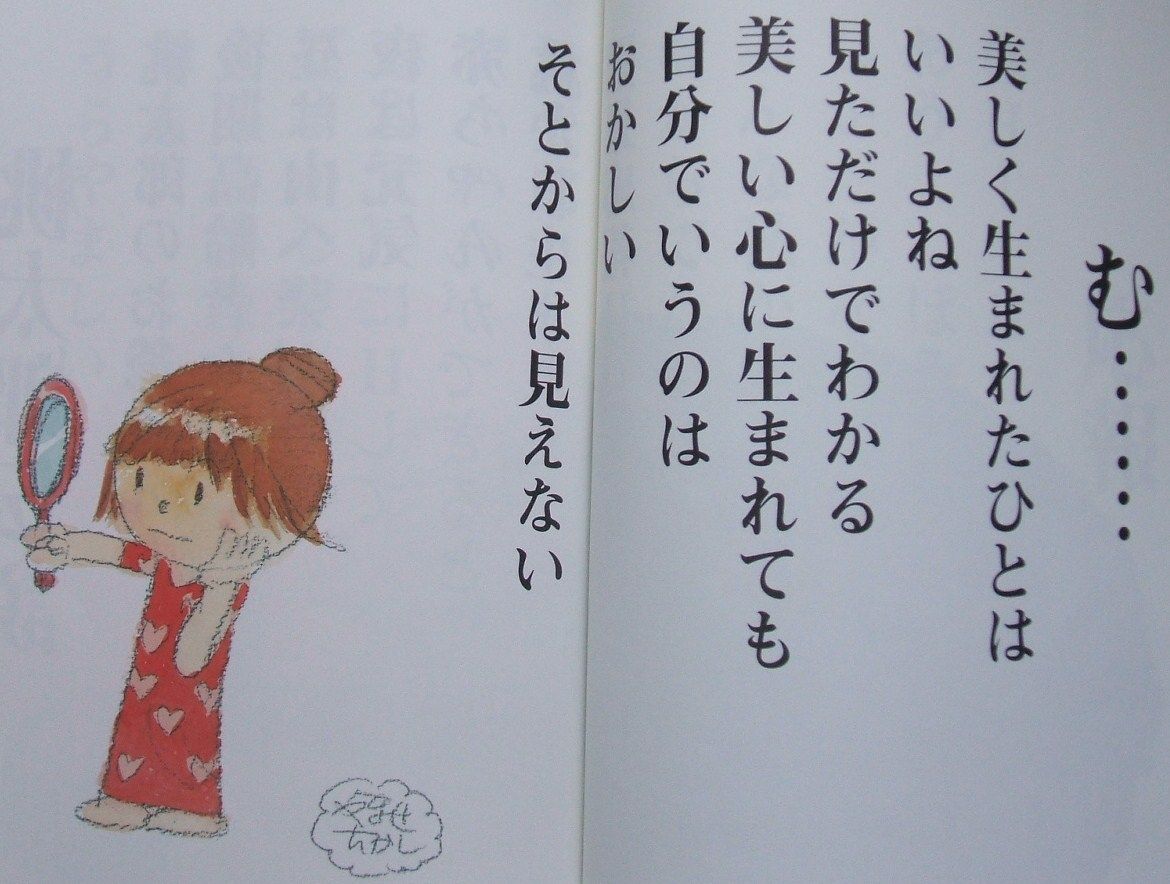 む・・・・・・
美しく生まれたひとは
いいよね
見ただけでわかる
美しい心に生まれても
自分でいうのは
おかしい
そとからは見えない
やなせ
たかし